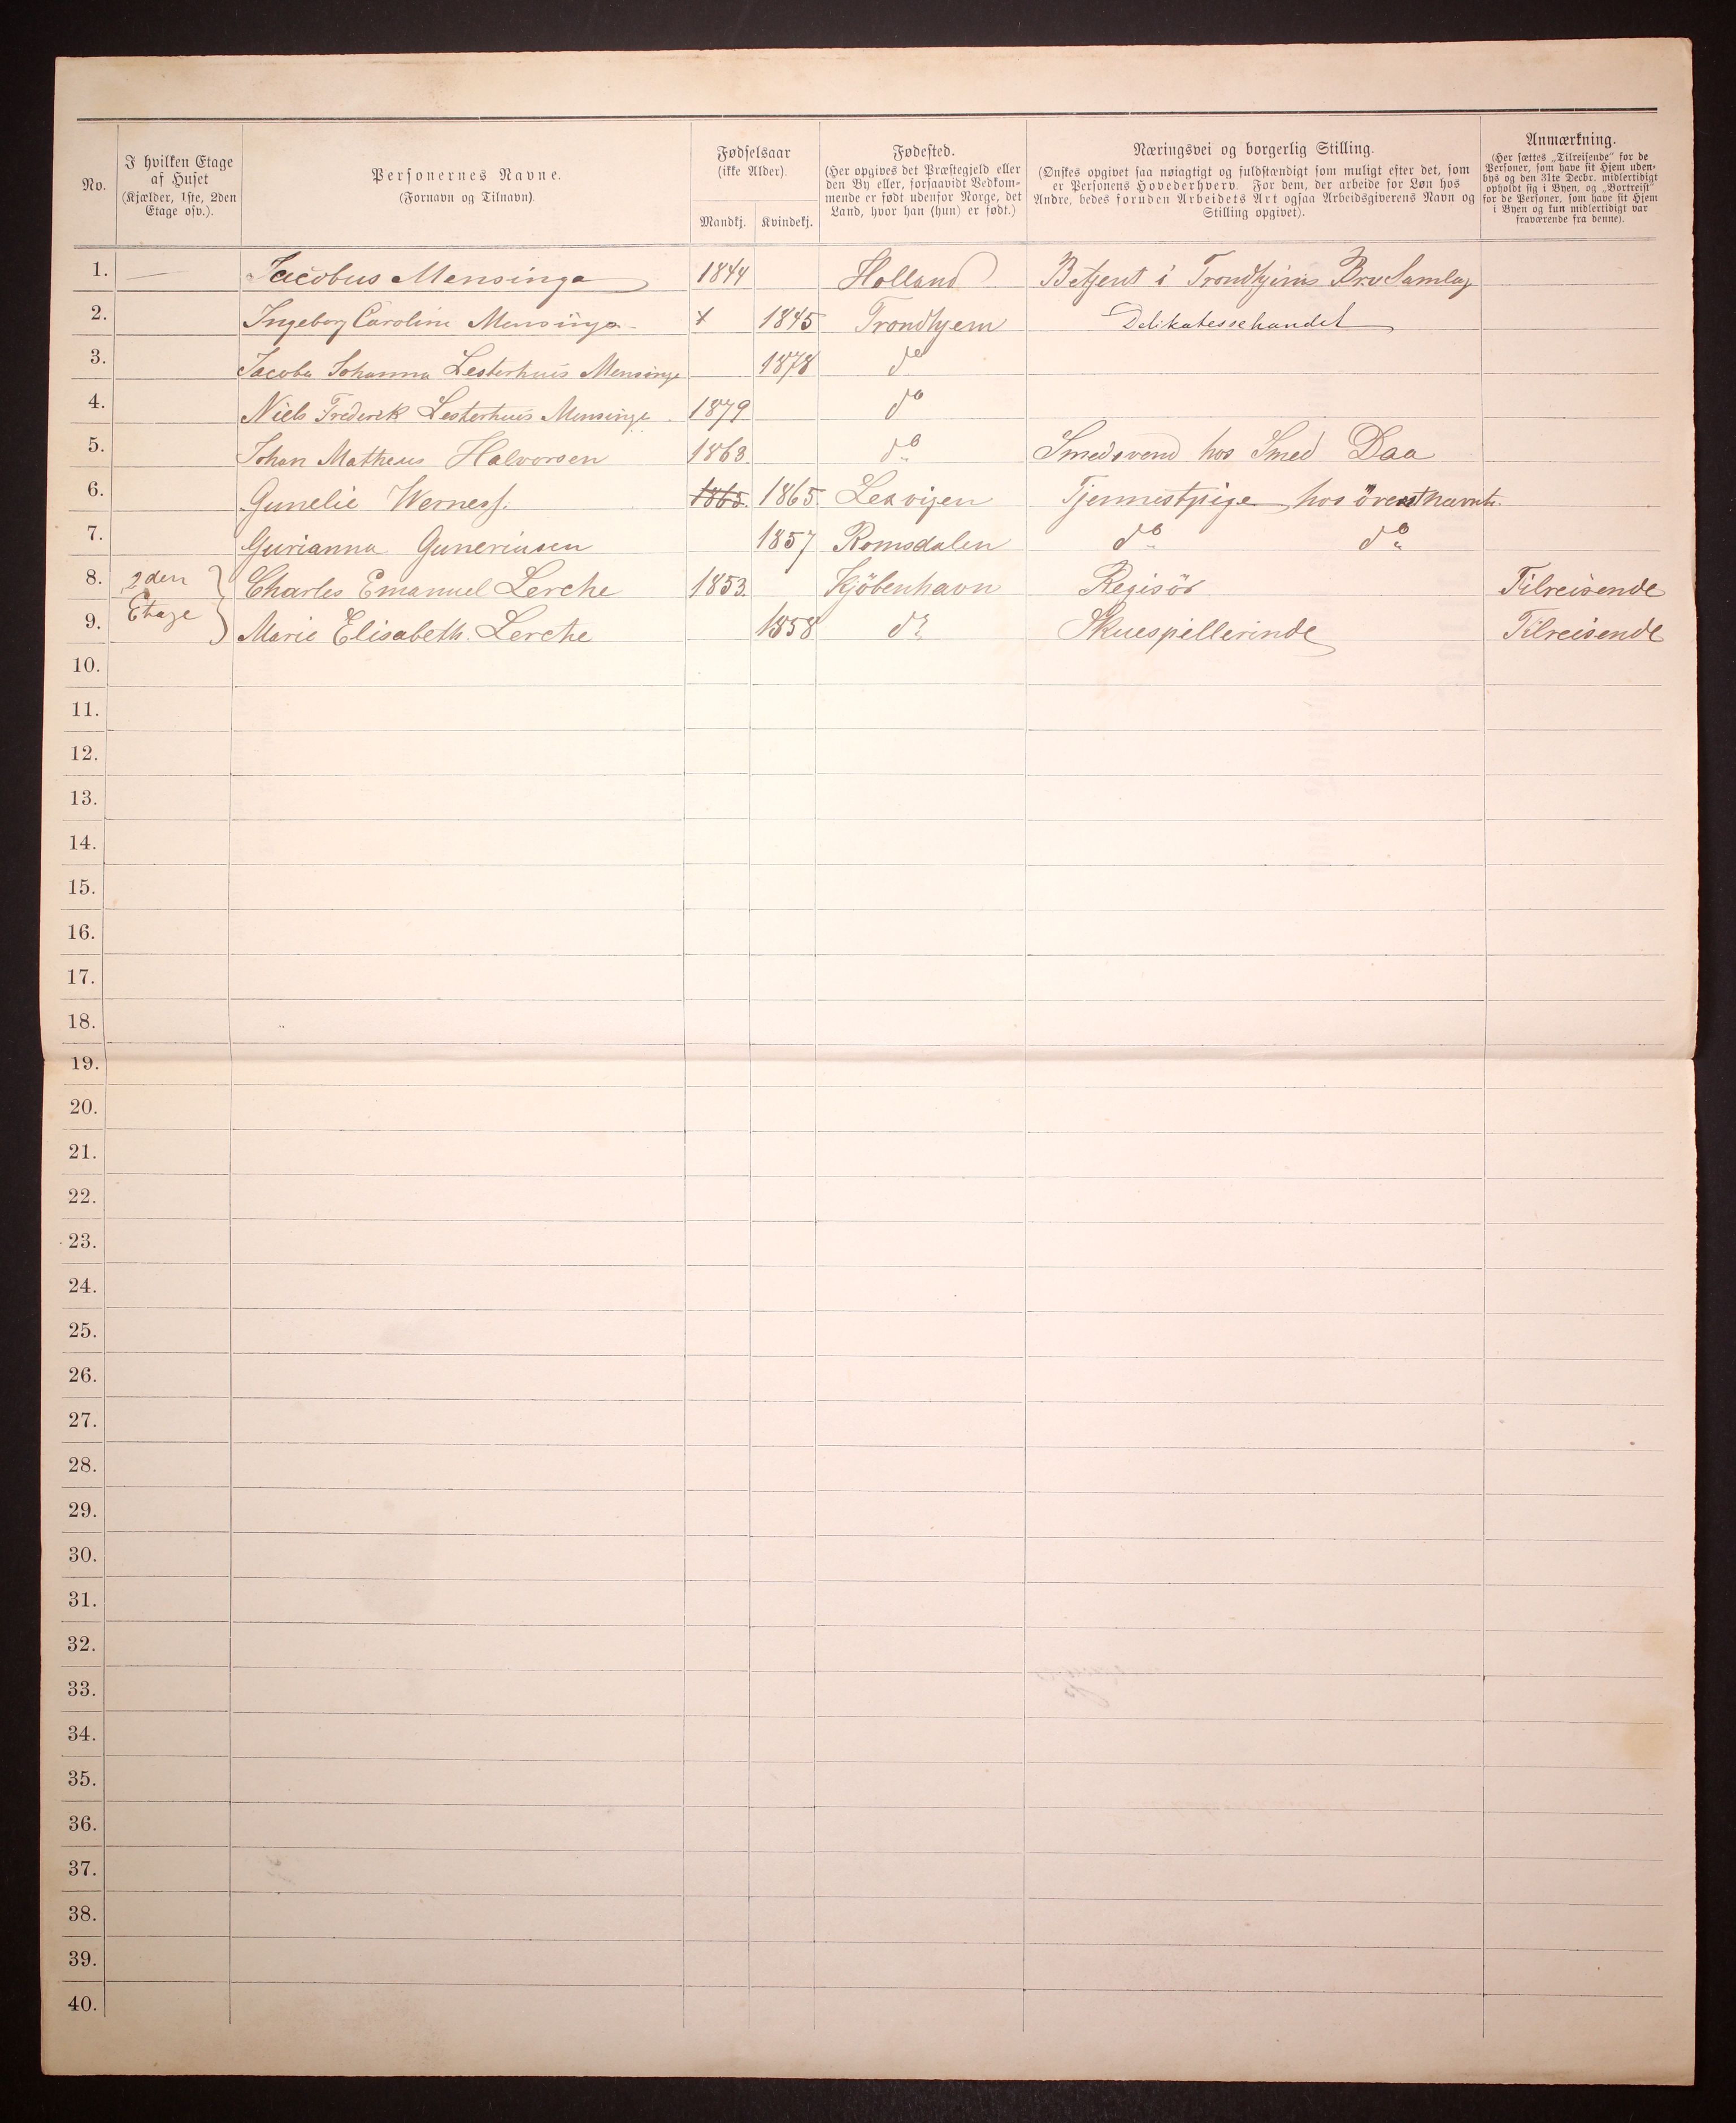 No.
I hvilken Etage
af Huset
(Kjælder, 1ste, 2den
Etage osv.).
Personernes Navne.
(Fornavn og Tilnavn).
Fødselsaar
(ikke Alder).
Mandkj. Kvindekj.
Fødested.
(Her opgives det Præstegjeld eller
den By eller, forsaavidt Vedkom-
mende er født udenfor Norge, det
Land, hvor han (hun) er født.)
Næringsvei og borgerlig Stilling.
(Ønskes opgivet saa nøiagtigt og fuldstændigt som muligt efter det, som
er Personens Hovederhverv. For dem, der arbeide for Løn hos
Andre, bedes foruden Arbeidets Art ogsaa Arbeidsgiverens Navn og
Stilling opgivet).
Anmærkning.
(Her sættes „Tilreisende“ for de
Personer, som have sit Hjem uden-
bys og den 31te Decbr. midlertidigt
opholdt sig i Byen, og „Bortreist“
for de Personer, som have sit Hjem
i Byen og kun midlertidigt var
fraværende fra denne).
1. — Jacobus Mensinga 1844 Holland Betjent i Trondhjems Brv Samlag
2. Ingeborg Caroline Mensinga x 1845 Trondhjem Delikatessehandel
3. Jacoba Johanna Lesterhuis Mensinga 1878 do
4. Niels Frederik Lesterhuis Mensinga 1879 do
5. Johan Matheus Halvorsen 1863. do Smedsvend hos Smed Daa
6. Gunelie Werness. 1865. 1865. Lexvigen Tjennestpige hos överstnævnte.
7. Gurianna Guneriusen 1857 Romsdalen do do
8. 2den Charles Emanuel Lerche 1853. Kjöbenhavn Regisör Tilreisende
9. Etage Marie Elisabeth. Lerche 1858 do Skuespillerinde Tilreisende
10.
11.
12.
13.
14.
15.
16.
17.
18.
19.
20.
21.
22.
23.
24.
25.
26.
27.
28.
29.
30.
31.
32.
33.
34.
35.
36.
37.
38.
39.
40.